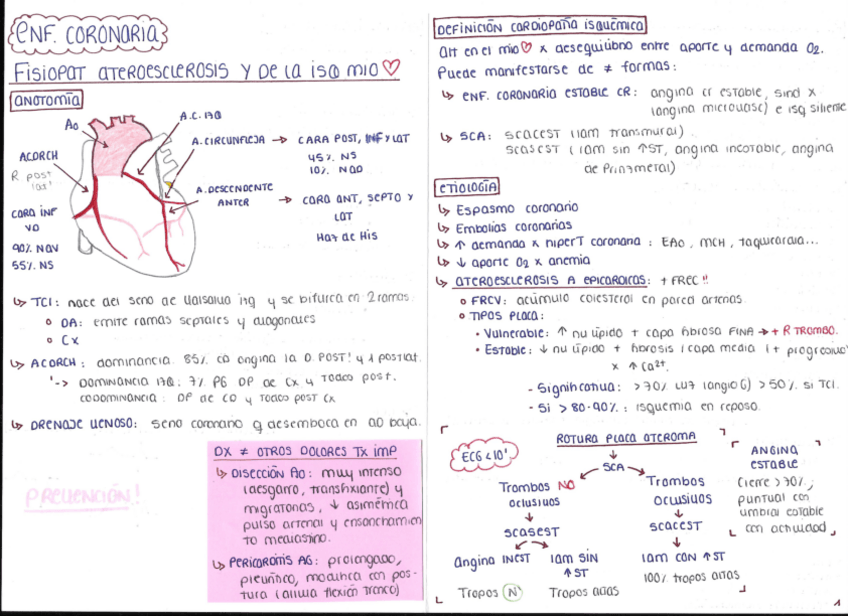 ENF. CORONARIA
FISIOPAT ATEROESCLEROSIS Y DE LA ISQ MIO♡
ANATOMÍA
Ao
A.C. IZQ
A. CIRCUNFLEJA → CARA POST, INF Y LAT
45% NS
10% NAV
ACORCH
R post
A. DESCENDENTE ANTER → CARA ANT, SEPTO Y LAT
Haz de His
CARA INF
VD
90% NAV
55% NS
↳ TCI: nace del seno de Valsalva izq y se bifurca en 2 ramas.
○ DA: emite ramas septales y diagonales
○ Cx
↳ ACORCH: dominancia. 85% CD origina la D. POST! y 1 postlat.
'-> DOMINANCIA IZQ: 7% PG DP de Cx y TODAS post.
CODOMINANCIA: DP de CD y TODAS POST CX
↳ DRENAJE VENOSO: seno coronario q desemboca en AD baja.
PREVENCIÓN!
DX ≠ OTROS DOLORES TX imp
↳ DISECCIÓN Ao: muy intenso
(desgarro, transfixiante) y
migratorias, ↓ asimétrica
pulso arterial y ensanchamien
to mediastino.
↳ PERICARDITIS AG: prolongado,
pleurítico, modifica con pos-
tura (alivia flexión tronco)
DEFINICIÓN CARDIOPATÍA ISQUÉMICA
Alt en el mio♡ x desequilibrio entre aporte y demanda O2.
Puede manifestarse de ≠ formas:
↳ ENF. CORONARIA ESTABLE CR: angina cr estable, sind x
(angina microvasc) e isq silente
↳ SCA: SCACEST (IAM transmural)
SCASEST (IAM sin ↑ST, angina inestable, angina
de Prinzmetal)
ETIOLOGÍA
↳ Espasmo coronario
↳ Embolias coronarias
↳ ↑ demanda x hiperT coronaria: EAo, MCH, taquicardia...
↳ ↓ aporte O2 x anemia
↳ ATEROESCLEROSIS A EPICÁRDICAS: + FREC!!
○ FRCV: acúmulo colesterol en pared arterias.
○ TIPOS PLACA:
• Vulnerable: ↑ nu lípido + capa fibrosa FINA → + R TROMBO.
• Estable: ↓ nu lípido + fibrosis (capa media) (+ progresivo
x ↑ Ca2+.
- Significativa: >70% luz (angioG) >50% si TCI.
- Si >80-90%: isquemia en reposo.
ECG <10'
ROTURA PLACA ATEROMA
SCA
Trombos NO oclusivos
SCASEST
Angina INEST
Tropos N
IAM SIN ↑ST
Tropos altas
Trombos oclusivos
SCACEST
IAM CON ↑ST
100% tropos altas
ANGINA
ESTABLE
Cierre >70%;
puntual con
umbral estable
con actividad
1